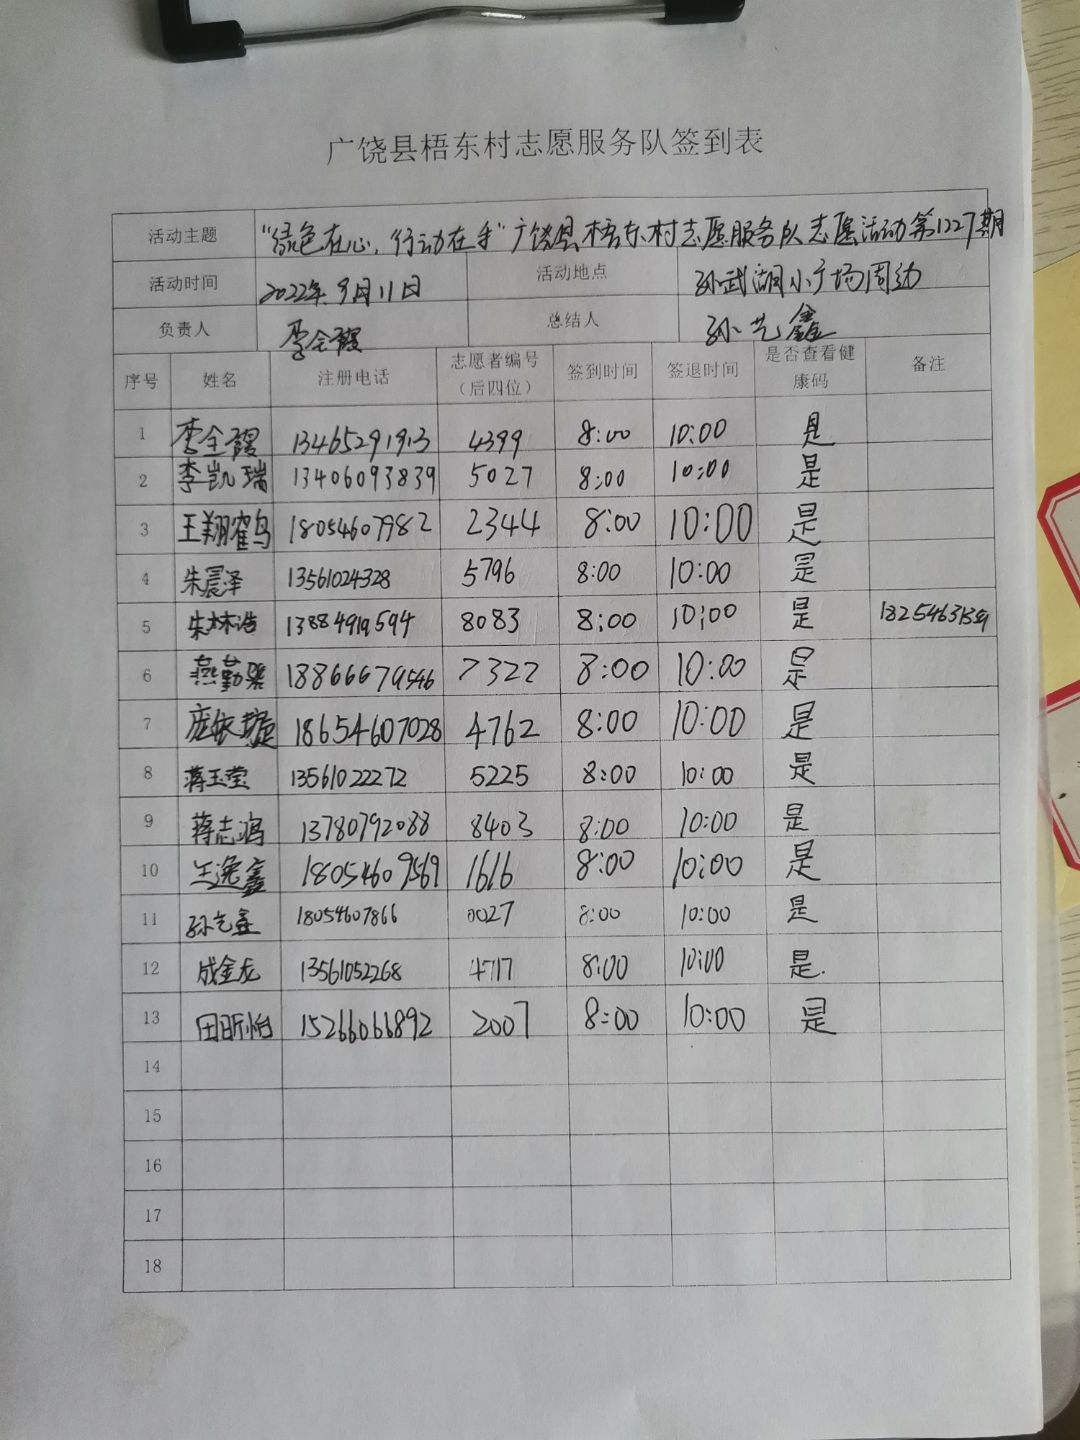 广饶县梧东村志愿服务队签到表
活动主题 “绿色在心，行动在手”广饶县梧东村志愿服务队志愿活动第1227期
活动时间 2022年9月11日 活动地点 孙武湖小广场周边
负责人 李全 总结人 孙艺鑫
序号 姓名 注册电话 志愿者编号（后四位） 签到时间 签退时间 是否查看健康码 备注
1 李全 13465291913 4399 8:00 10:00 是
2 李凯瑞 13406093839 5027 8:00 10:00 是
3 王翔鹤 18054607982 2344 8:00 10:00 是
4 朱晨泽 13561024328 5796 8:00 10:00 是
5 朱林浩 13884919594 8083 8:00 10:00 是
6 燕勤 18866679546 7322 8:00 10:00 是
7 庞依璇 18654607028 4762 8:00 10:00 是
8 蒋玉莹 13561022272 5225 8:00 10:00 是
9 蒋志鸿 13780792088 8403 8:00 10:00 是
10 王逸鑫 18054609569 1616 8:00 10:00 是
11 孙艺鑫 18054607866 0027 8:00 10:00 是
12 成金龙 13561052268 4717 8:00 10:00 是.
13 田昕怡 15266066892 2007 8:00 10:00 是
14
15
16
17
18